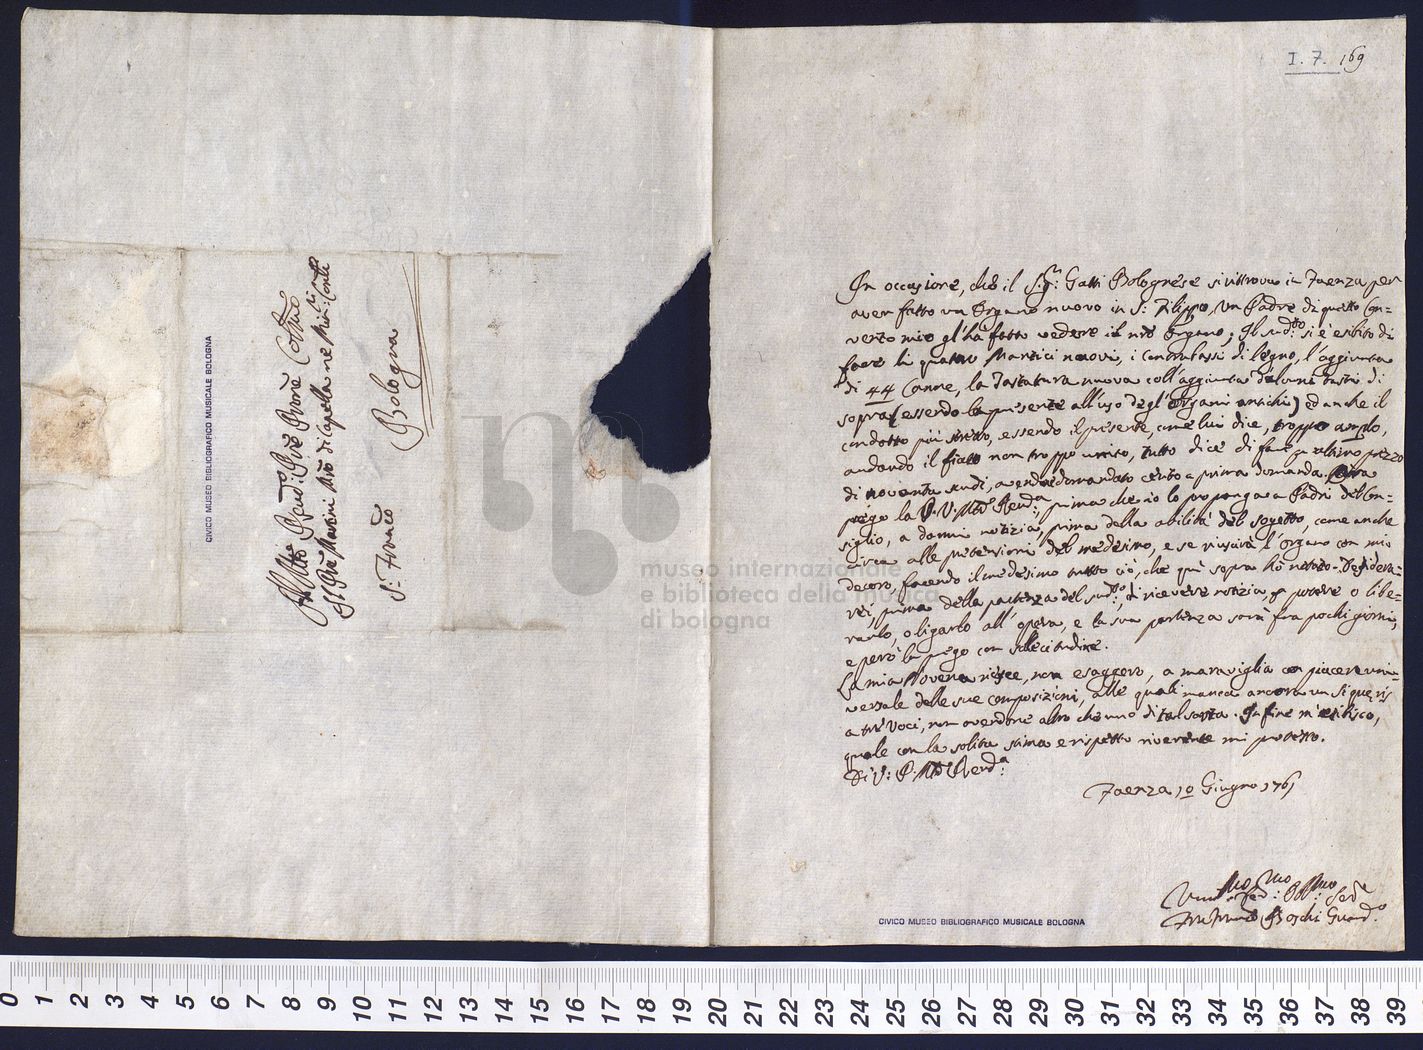 I. 7. 169
In occasione, che il Sig: Gatti Bolognese si ritrova in Faenza per
aver fatto un Organo nuovo in S: Filippo, un Padre di questo Con-
vento mio gl'ha fatto vedere il nro Organo; Il sudto: si è esibito di
fare li quattro Mantici nuovi, i Contrabassi di legno, l'aggiunta
di 44 Canne, la Tastatura nuova coll'aggiunta d'alcuni tasti di
sopra (essendo la presente all'uso degl'Organi antichi) ed anche il
condotto più stretto, essendo il presente, come lui dice, troppo amplo,
andando il fiato non troppo unito, tutto dice di fare p ultimo prezzo
di novanta scudi, avendo domandato cento a prima domanda. Ora
prego la P. V. Mto Renda:, prima che io lo proponga a Padri del Con-
siglio, a darmi notizia, prima della abilità del sogetto, come anche
circa alle pretensioni del medesimo, e se riuscirà l'Organo con mio
decoro, facendo il medesimo tutto ciò, che quì sopra hò notato. Desidera-
rei, prima della partenza del sudto:, di ricevere notizia, p potere o libe-
rarlo, o ligarlo all'opera, e la sua partenza sarà fra pochi giorni,
e però la prego con sollecitudine.
La mia Novena riesce, non esaggero, a maraviglia con piacere uni-
versale delle sue composizioni, alle quali manca ancora un Si quęris
a tre voci, non avendone altro che uno di tal sorta. In fine m'esibisco,
quale con la solita stima e rispetto riverente mi protesto.
Di V: P. Mto Renda:
Faenza 10 Giugno 1761
Servo
Boschi Guardo.
Al Mto Revdo: Pre Prone Colmo
Il Pre Martini Mro di Capella ne Miri: Conti
S: Franco
Bologna
CIVICO MUSEO BIBLIOGRAFICO MUSICALE BOLOGNA
CIVICO MUSEO BIBLIOGRAFICO MUSICALE BOLOGNA
museo internazionale
e biblioteca della musica
di bologna
0 1 2 3 4 5 6 7 8 9 10 11 12 13 14 15 16 17 18 19 20 21 22 23 24 25 26 27 28 29 30 31 32 33 34 35 36 37 38 39